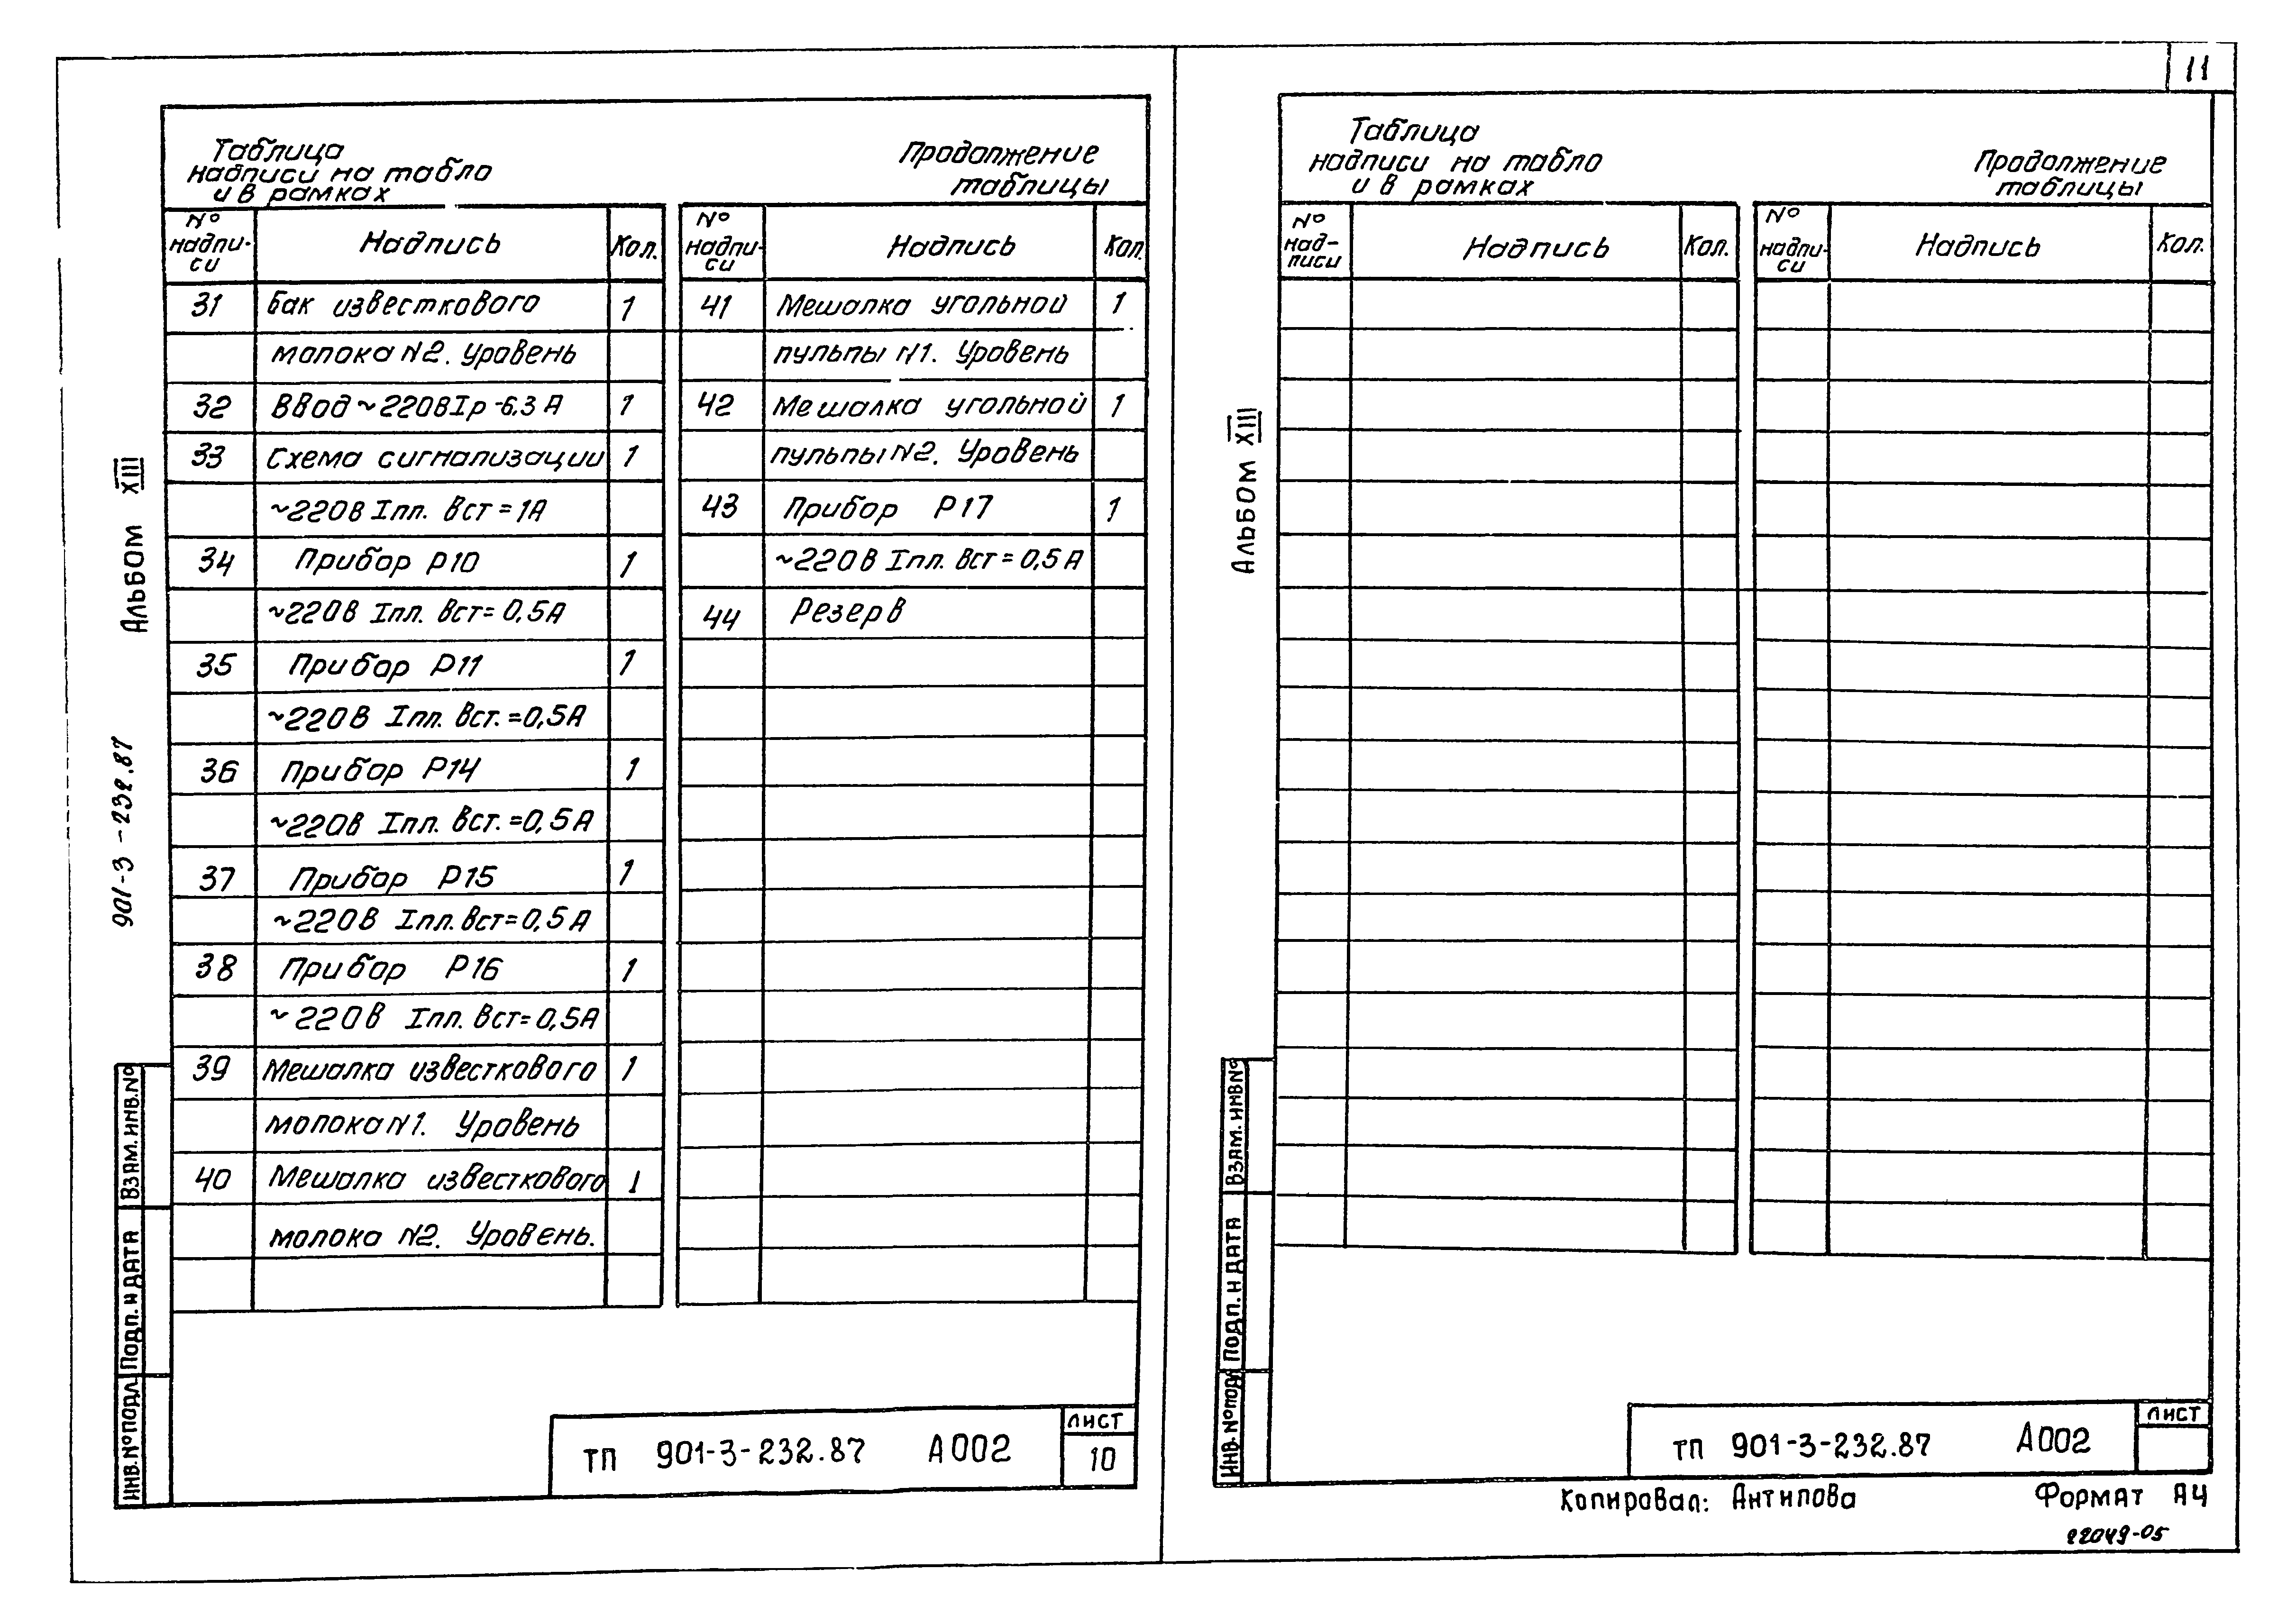 11
Таблица
надписи на табло
и в рамках
Продолжение
таблицы
№ надписи Надпись Кол.
31 Бак известкового 1
молока N2. Уровень
32 Ввод ~220В Iр -6.3 А 1
33 Схема сигнализации 1
~220в Iпл. Вст = 1А
34 Прибор Р10 1
~220В Iпл. Вст = 0,5А
35 Прибор Р11 1
~220В Iпл. Вст. = 0,5А
36 Прибор Р14 1
~220В Iпл. Вст. = 0,5А
37 Прибор Р15 1
~220В Iпл. Вст = 0,5А
38 Прибор Р16 1
~220В Iпл. Вст = 0,5А
39 Мешалка известкового 1
молока N1. Уровень
40 Мешалка известкового 1
молока N2. Уровень.
№ надписи Надпись Кол.
41 Мешалка угольной 1
пульпы N1. Уровень
42 Мешалка угольной 1
пульпы N2. Уровень
43 Прибор Р17 1
~220В Iпл. Вст = 0,5А
44 Резерв
Альбом XIII
901-3-232.87
Взам. инв. №
Подп. и дата
Инв. № подл.
ТП 901-3-232.87 А002
Лист
10
Таблица
надписи на табло
и в рамках
Продолжение
таблицы
№ надписи Надпись Кол.
№ надписи Надпись Кол.
Альбом XIII
Взам. инв №
Подп. и дата
Инв. № подл
ТП 901-3-232.87 А002
Лист
Копировал: Антипова Формат А4
22049-05